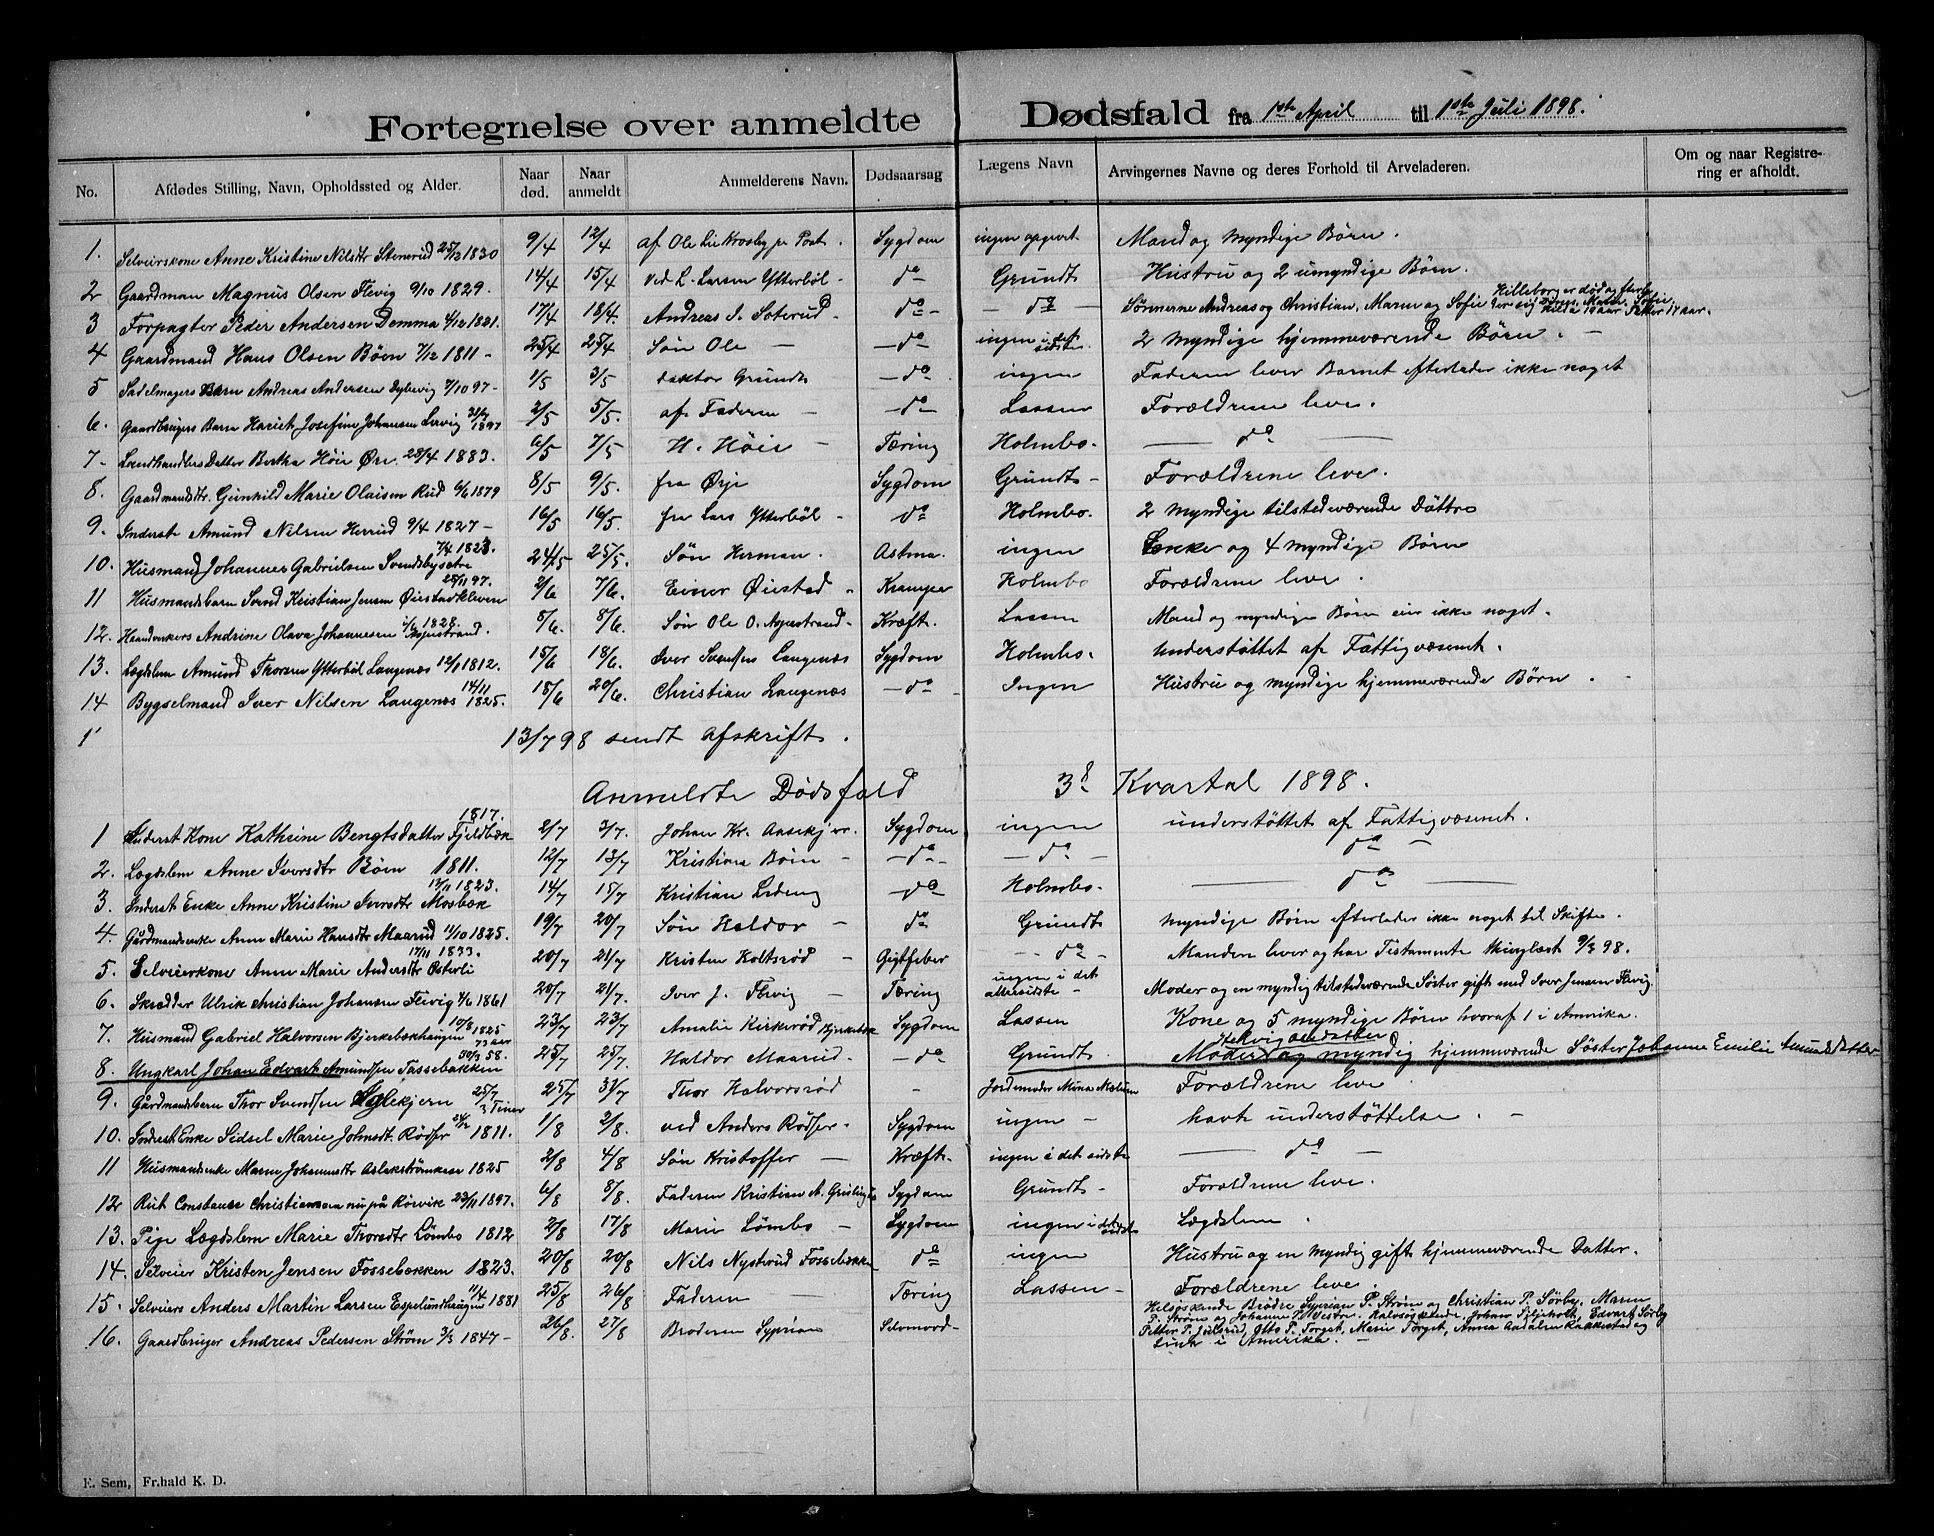 Fortegnelse over anmeldte Dødsfald fra 1ste April til 1ste Juli 1898.
No. Afdødes Stilling, Navn, Opholdssted og Alder. Naar død. Naar anmeldt Anmelderens Navn. Dødsaarsag Lægens Navn Arvingernes Navne og deres Forhold til Arveladeren. Om og naar Registrering er afholdt.
1. Selveierskone Anne Kristine Nilsdtr Stenerud 25/12 1830 9/4 12/4 af Ole Lie Krosby pr Post. Sygdom ingen opgivet. Mand og myndige Børn.
2 Gaardman Magnus Olsen Flevig 9/10 1829. 14/4 15/4 ved L. Larsen Ytterböl - do Grundt Hustru og 2 umyndige Børn.
3 Forpagter Peder Andersen Demma 4/12 1821. 17/4 18/4. Andreas S. Soterud - do - - do Sønnerne Andreas og Christian, Maren og Sofie
4 Gaardmand Hans Olsen Böen 7/12 1811 - 25/4 25/4 Søn Ole - - do - ingen i det sidste. 2 myndige hjemmeværende Børn. -
5 Sadelmagers Barn Andreas Andersen 7/10 97 - 1/5 3/5 doktor Grundt - do - ingen Faderen lever Barnet efterlader ikke noget
6. Gaardbrugers Barn Hariet Josefine Johansen Lervig 1897 2/5 5/5. af Faderen - - do - Lassen Forældrene leve.
7- Landhandlers Datter Bertha Höie Ørje 28/4 1883. 6/5 7/5 H. Höie - Tæring Holmbo. - do -
8. Gaardmandsdtr. Gunhild Marie Olaisen Rud 6/6 1879 8/5 9/5. fra Ørje Sygdom Grundt - Forældrene leve.
9. Inderst Amund Nilsen Herrud 9/4 1827 - 16/5 16/5. fra Lars Ytterböl - do Holmbo. 2 myndige tilstedeværende Döttre
10. Husmand Johannes Gabrielsen Svendsbysetre 7/4 1823. 24/5 25/5. Søn Herman. Astma. ingen Enke og 4 myndige Børn
11 Husmandsbarn Svend Kristian Jensen Øiestadkleven 28/11 97. 2/6 7/6. Einer Øiestad - Krampe Holmbo Forældrene leve.
12. Haandverkers Andrine Olava Johannesen 1828. 8/6. 8/6. Søn Ole O. Kræft. Lassen Mand og myndige Børn eier ikke noget.
13. Lægdslem Amund Thorsen Ytterböl Langenæs 12/1 1812. 15/6 18/6. Iver Svendsen Langenæs Sygdom Holmbo. understöttet af Fattigvæsenet.
14 Bygselmand Iver Nilsen Langenæs 14/11 1825. 18/6 20/6. Christian Langenæs - do - Ingen Hustru og myndige hjemmeværende Børn.
1' 13/7 98 sendt Afskrift.
Anmeldte Dødsfald 3die Kvartal 1898.
1 Inderst Kone Kathrine Bengtsdatter Fjeldbæk 1817. 2/7 3/7. Johan Kr. Aasekjær. Sygdom ingen understøttet af Fattigvæsenet.
2. Lægdslem Anne Iversdtr Böen 1811. 12/7 13/7 Kristian Böen - - do - - do - do -
3. Inderst Enke Anne Kristine Iversdtr Mosbæk 13/11 1823. 14/7 15/7 Kristian Lideng - do Holmbo. - do -
4. Gårdmandsenke Anne Marie Hansdtr Maarud 11/10 1825. 19/7 20/7 Søn Haldor - do Grundt myndige Børn efterlader ikke noget til Skifte.
5. Selveierkone Anne Marie Andersdtr Österli 17/11 1833. 20/7 21/7 Kristen Holtsrød - Gigtfeber - do - Manden lever og har Testamente thinglæst 9/3 98.
6. Skrædder Ulrik Christian Johansen Flevig 4/6 1861 20/7 21/7. Iver J. Flevig - Tæring ingen i det allersidste - Moder og en myndig tilstedeværende Söster gift med Iver Jensen Flevig.
7. Husmand Gabriel Halvorsen Bjerkebækhaugen 10/8 1825 73 aar 23/7 23/7 Amalie Kirkerød Bjerkebæk Sygdom Lassen Kone og 5 myndige Børn hvoraf 1 i Amerika.
8. Ungkarl Johan Edvart Amundsen Fossebakken 30/3 58. 25/7 25/7. Haldor Maarud. - do Grundt. Moder og myndig hjemmeværende Söster Johanne Emilie Amundsdatter
9. Gårdmandsbarn Thor Svendsen 25/7 3 Timer 25/7 31/7 Thor Halvorsrød - Jordemoder Mina Forældrene leve
10. Inderst Enke Sidsel Marie Johnsdt. Rödser 1811. 1/8 2/8. ved Anders Rödser. Sygdom ingen - havt understöttelse. -
11 Husmandsenke Maren Johannesdtr Aslakströmkasa 1825 2/8 4/8 Søn Kristoffer - Kræft. ingen i det sidste - do -
12 Rut Constanse Christiansen nu på Rörvik 23/11 1897. 6/8 8/8. Faderen Kristian A. Sygdom Grundt - Forældrene leve.
13. Pige Lægdslem Marie Thorsdtr Lömbo 1812 2/8 17/8 Marie Lömbo - Sygdom ingen i det sidste Lægdslem.
14. Selveier Kristen Jensen Fossebækken 1823. 20/8 20/8 Nils Nystrud Fossebække do ingen Hustru og en myndig gift hjemmeværende Datter.
15. Selveiers Anders Martin Larsen Espelundhaugen 11/4 1881 25/8 26/8 Faderen - Tæring Lassen - Forældrene leve.
16. Gaardbruger Andreas Pedersen Ström 3/3 1847 - 26/8. 27/8 Broderen Syprian Selvmord - Helsöskende Brödre Syprian P. Ström og Christian P. Sörby, Maren
P. Ström og Johanne P. Vestre. Halvsöskende Johan Edvart Sörby
Petter P. Otto P. Torget, Marie Torget, Anna Rakkestad og
i Amerika. -
E. Sem, Fr.hald K. D.